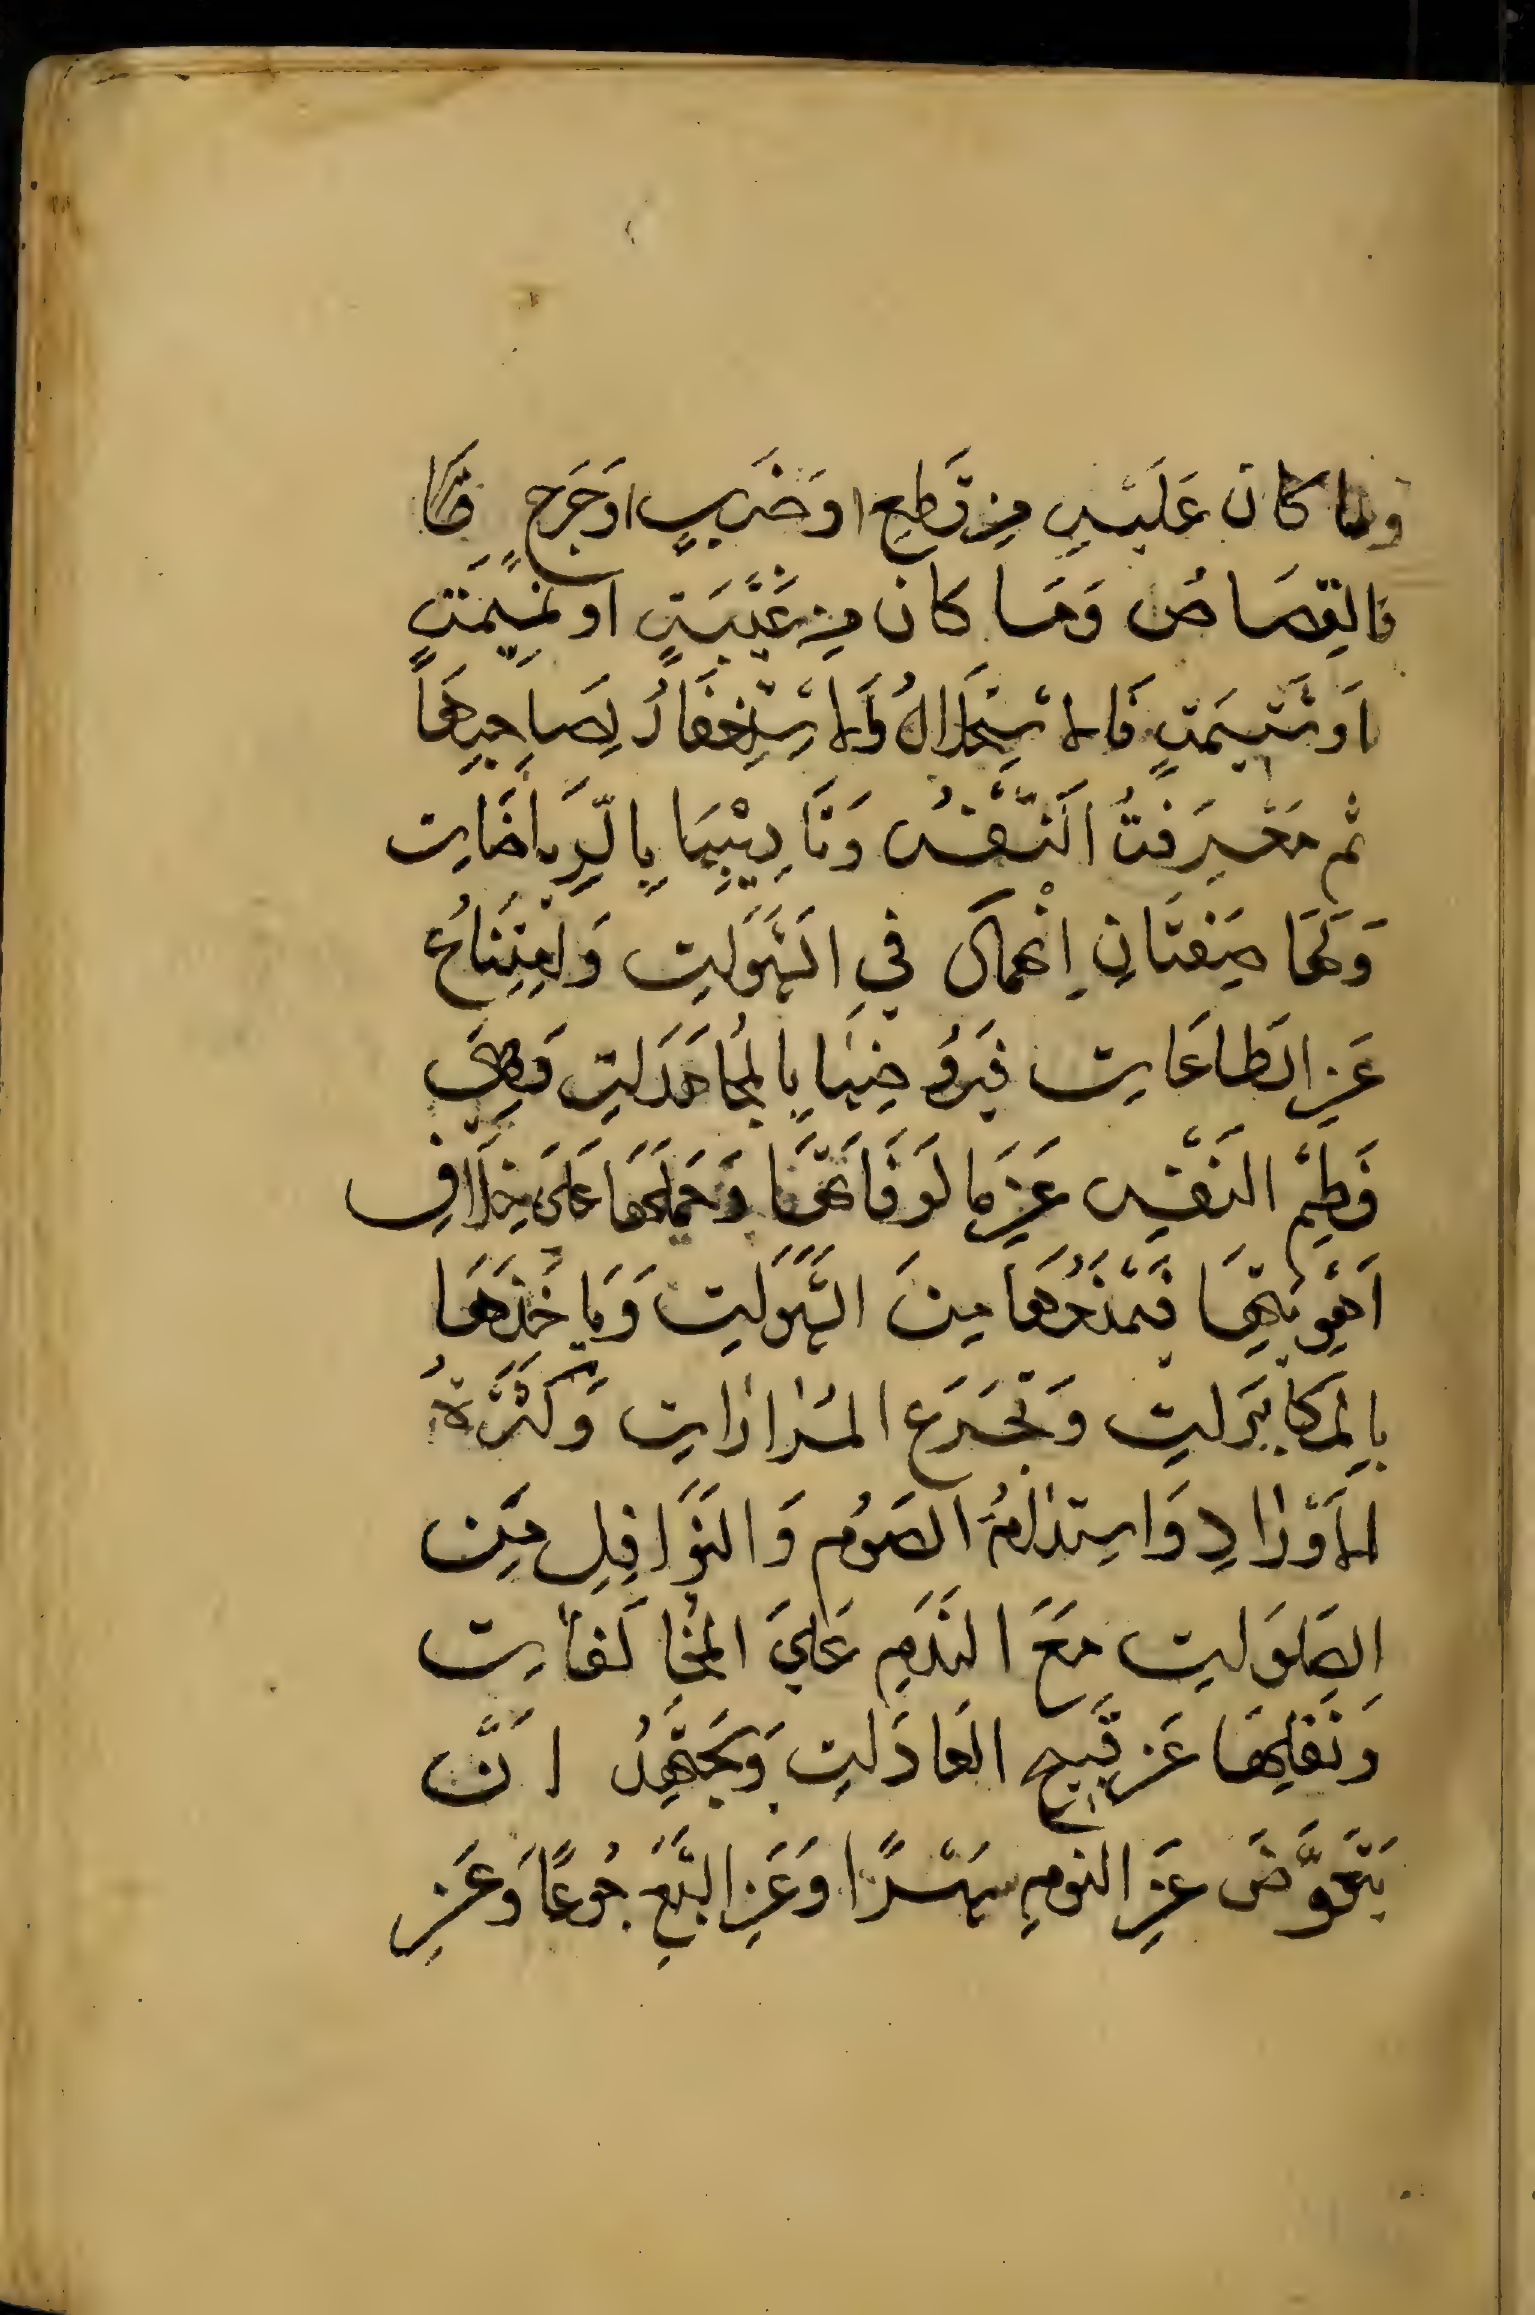 وما كان عَلَيْهِ مِن قَطعٍ او ضَربٍ او جَرحٍ
فالقِصَاصُ وَمَا كان مِن غَيْبَتٍ او نَميمَتٍ
اَو شَتيمَتٍ فَالاستِحلَالُ وَالاستِغفَارُ لِصَاحِبِهَا
ثم مَعْرِفَتُ النَّفْسِ وَتَادِيبِهَا بِالرِّيَاضَاتِ
وَلَهَا صِفَتَانِ اِنْهِماك في الشَّهَوَاتِ وَامتِنَاعُ
عَنِ الطاعَاتِ فَيَرُوضُهَا بِالمُجَاهَدَاتِ وَهِيَ
فَطمُ النَفْسِ عَن مالوفَاتِهَا وَحَملُهَا عَلَى خِلَافِ
اَهْوِيَتِهَا فَيَمْنَعُهَا مِنَ الشَّهَوَاتِ وَيَاخُذُهَا
بِالمُكَابَدَاتِ وَتَجَرُّعِ المَرَارَاتِ وَكَثْرَةُ
الأَوْرَادِ وَاستدَامُة الصَوْمِ وَالنَوَافِلِ مِنَ
الصَلَوَاتِ مَعَ النَدَمِ عَلَى المُخَالَفَاتِ
وَنَقلِهَا عَن قَبيحِ العَادَاتِ وَيَجتَهِدُ اَنْ
يَتَعَوَّضَ عَنِ النومِ سَهَرًا وَعَنِ الشَّبَعِ جُوعًا وَعَنِ